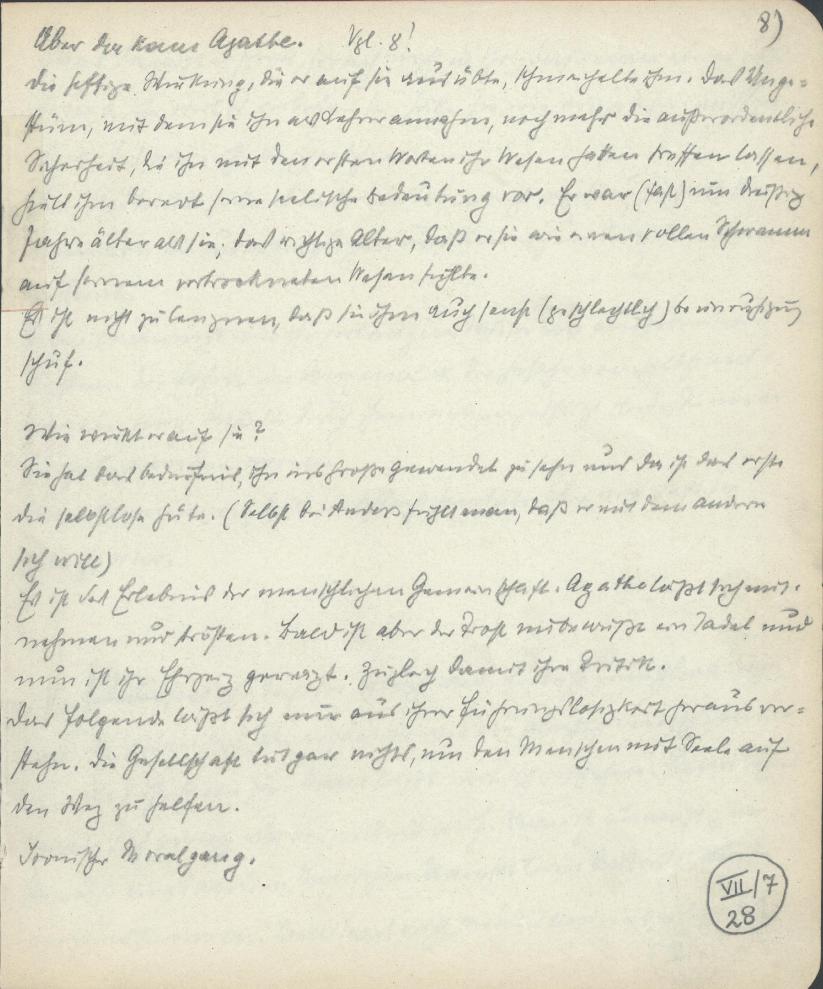 8)
Aber da kam Agathe. Vgl. 8!
Die heftige Wirkung, die er auf sie ausübte, schmeichelte ihm. Das Unge=
stüm, mit dem sie ihn als Lehrer annahm, noch mehr die außerordentliche
Sicherheit, die ihn mit den ersten Worten ihr Wesen hatten treffen lassen,
hielt ihm beredt seine seelische Bedeutung vor. Er war (fast) um dreißig
Jahre älter als sie; das richtige Alter, daß er sie wie einen vollen Schwamm
auf seinem vertrockneten Wesen fühlte.
Es ist nicht zu leugnen, daß sie ihm auch sanft (geschlechtlich) Beunruhigung
schuf.
Wie wirkt er auf sie?
Sie hat das Bedürfnis, ihn ins Große gewendet zu sehn und da ist das erste
die selbstlose Güte. (Selbst bei Anders fühlt man, daß er mit dem andern
sich will)
Es ist das Erlebnis der menschlichen Gemeinschaft. Agathe läßt sich mit=
nehmen und trösten. Bald ist aber der Trost unbewußt ein Tadel und
nun ist ihr Ehrgeiz gereizt. Zugleich damit ihre Kritik.
Das Folgende läßt sich nur aus ihrer Führungslosigkeit heraus ver=
stehn. Die Gesellschaft tut gar nichts, um den Menschen mit Seele auf
den Weg zu helfen.
Ironischer Moralgang.
VII/7
28